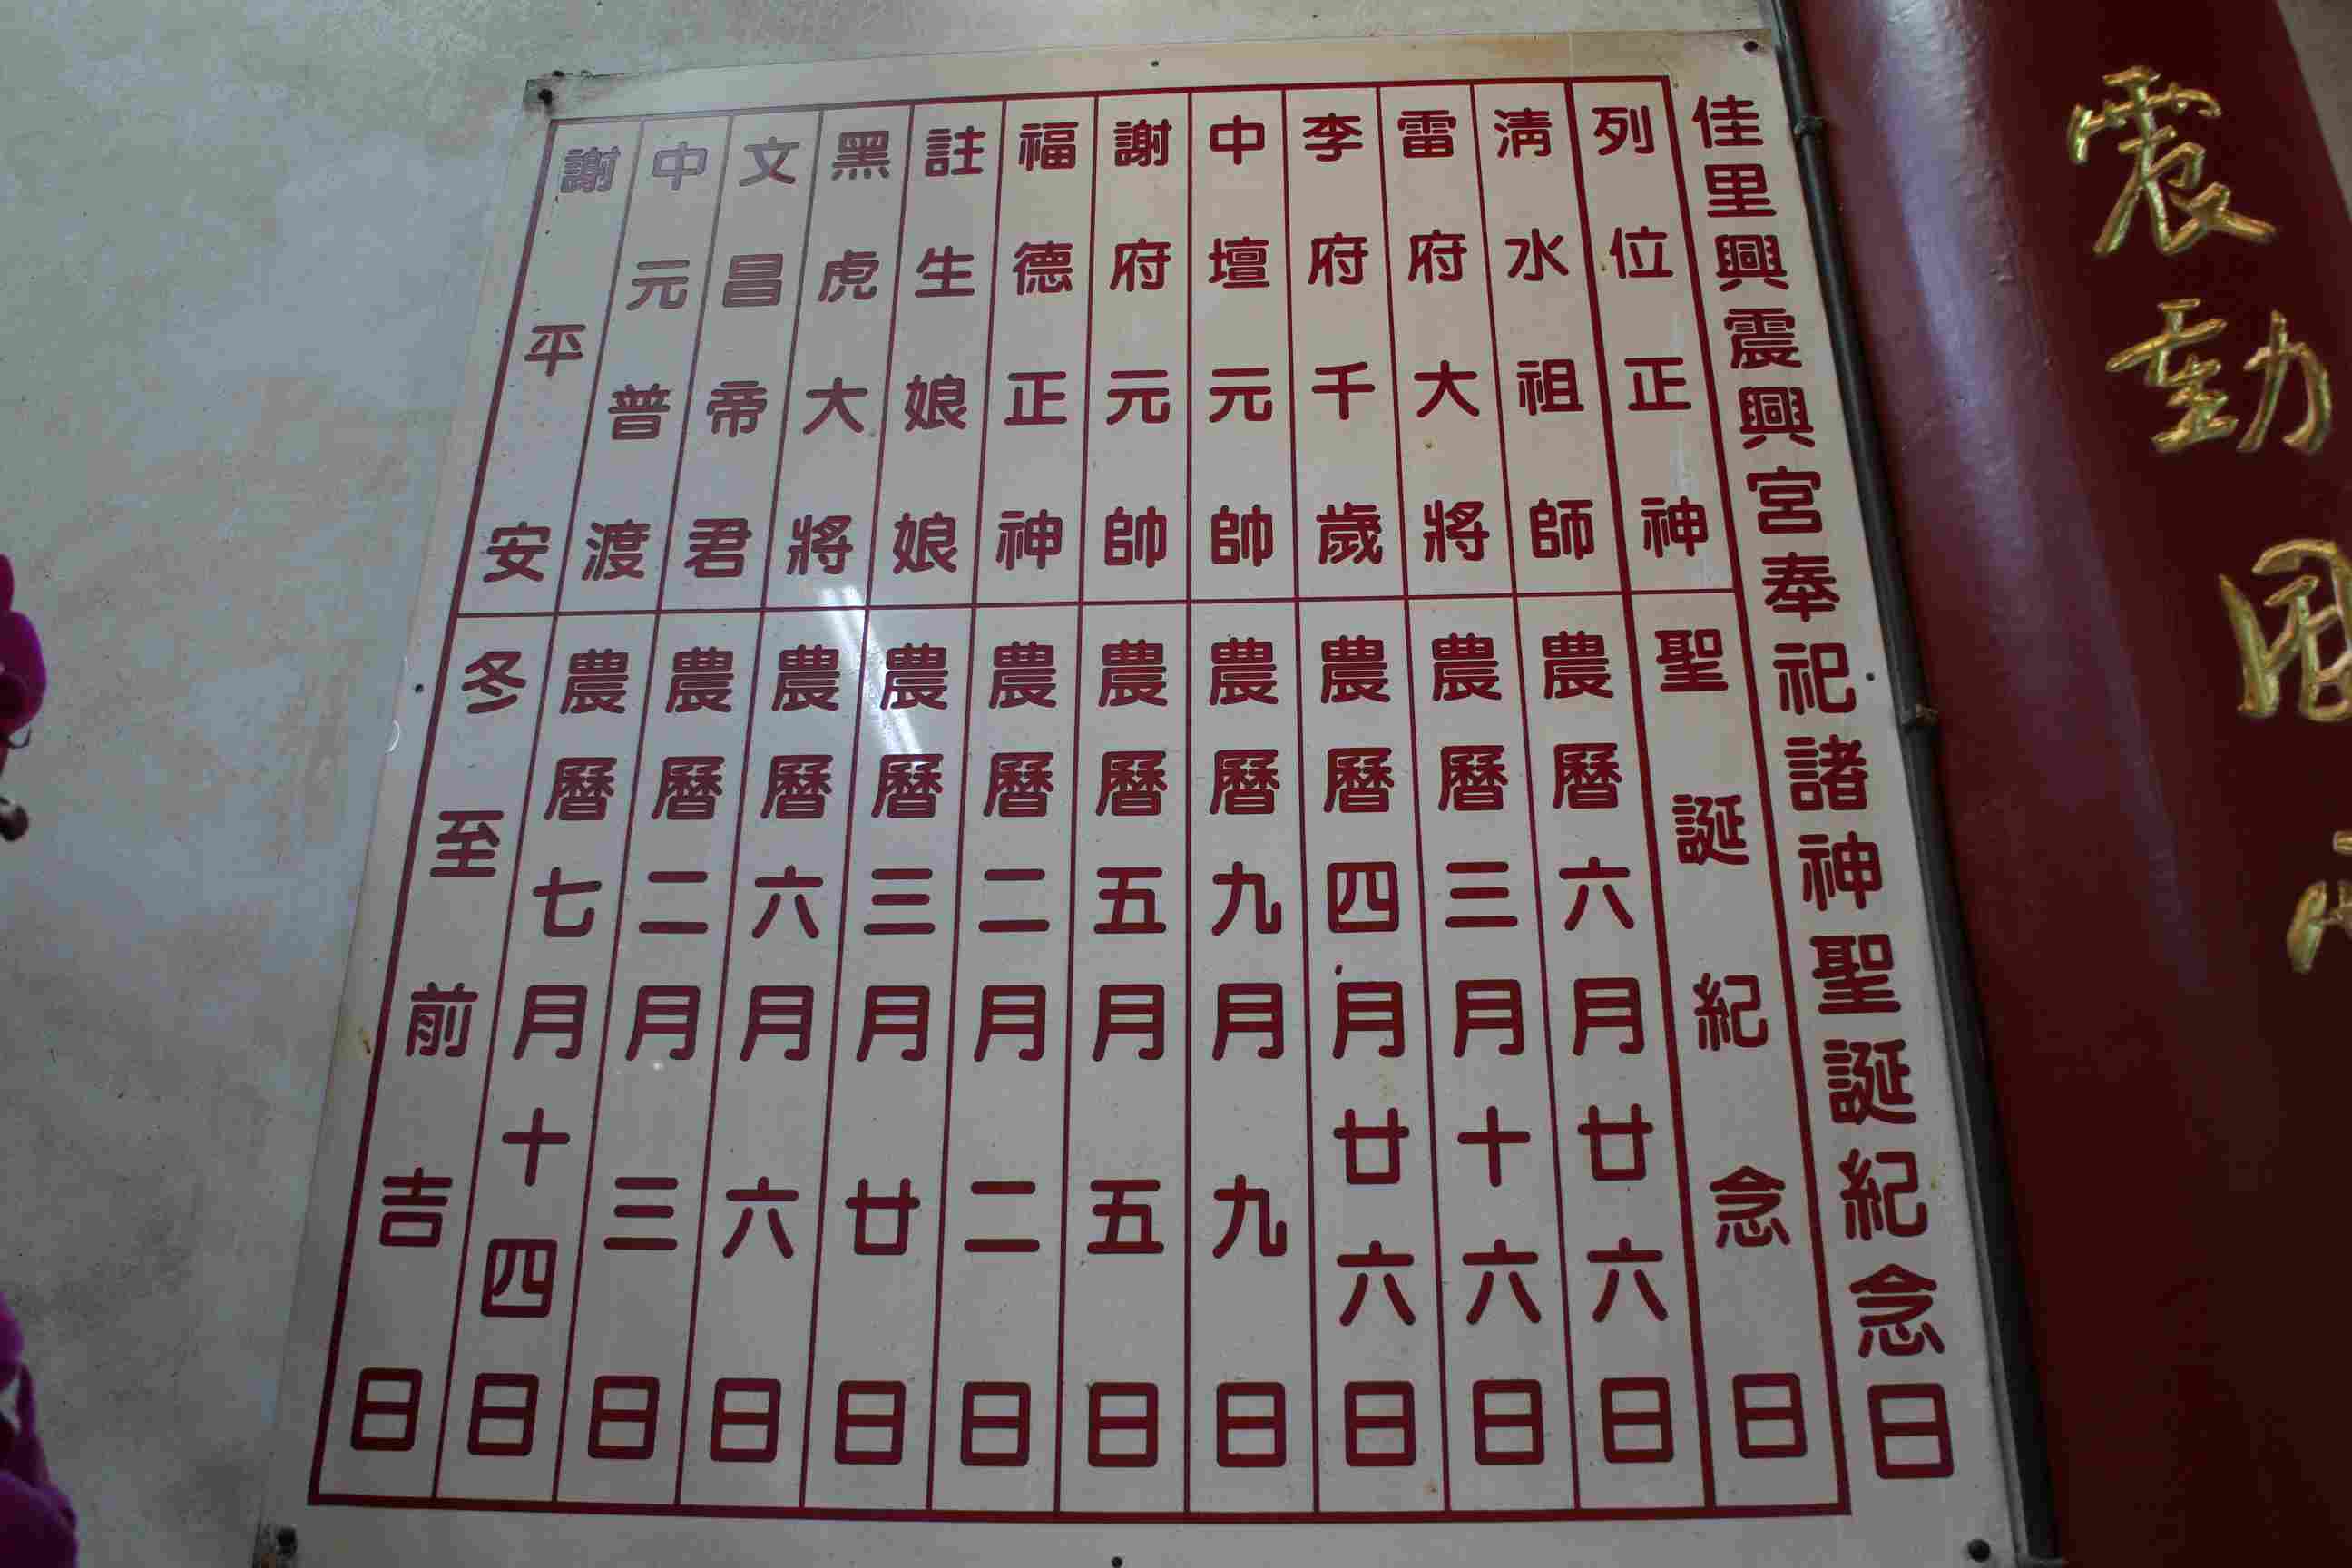 震動
佳里興震興宮奉祀諸神聖誕紀念日
列位正神 聖誕紀念日
清水祖師 農曆六月廿六日
雷府大將 農曆三月十六日
李府千歲 農曆四月廿六日
中壇元帥 農曆九月九日
謝府元帥 農曆五月五日
福德正神 農曆二月二日
註生娘娘 農曆三月廿日
黑虎大將 農曆六月六日
文昌帝君 農曆二月三日
中元普渡 農曆七月十四日
謝平安 冬至前吉日